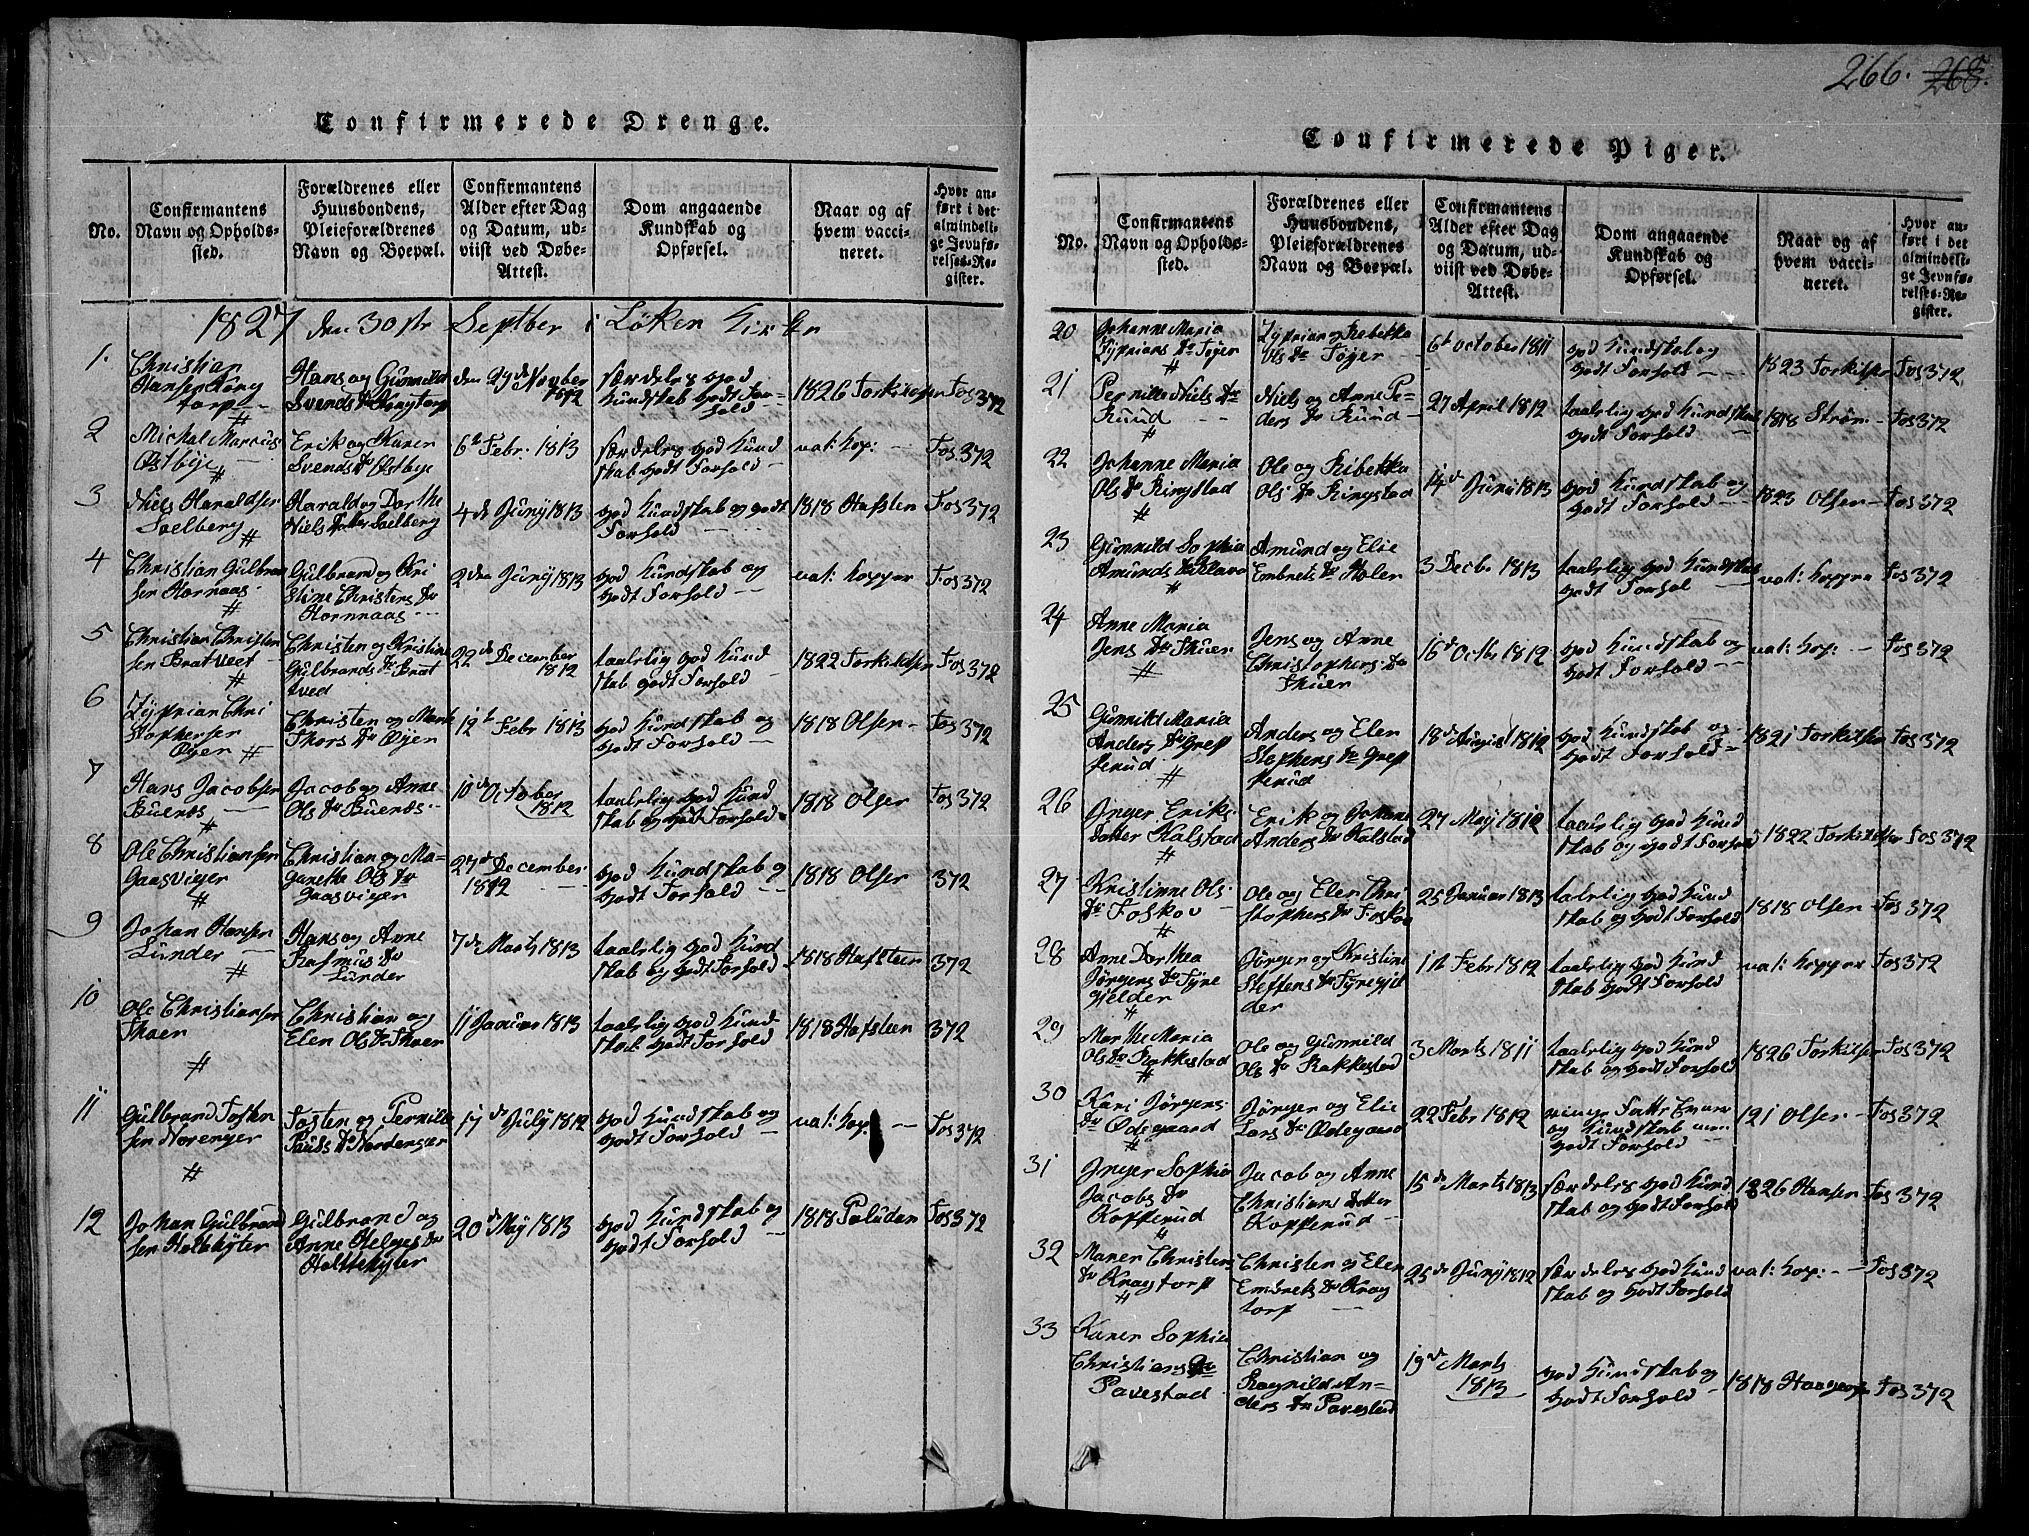 266. 268.
Confirmerede Drenge.
No.
Confirmantens
Navn og Opholds-
sted.
Forældrenes eller
Huusbondens,
Pleieforældrenes
Navn og Boepæl.
Confirmantens
Alder efter Dag
og Datum, ud-
viist ved Døbe-
Attest.
Dom angaaende
Kundskab og
Opførsel.
Naar og af
hvem vacci-
neret.
Hvor an-
ført i det
almindeli-
ge Jevnfø-
relses-Re-
gister.
1827 den 30str Septber i Löken Kirke
1.
Christian
Hansen Krog
torp
Hans og Gunnild
Svends Dr Krogtorp
den 29de November
1812
særdeles god
Kundskab godt For-
hold
1826 Torkilsen
Fos 372
2
Michal Marcus
Østbye
Erik og Karen
Svends Dr Østbye
6te Febr. 1813
særdeles god Kund
skab godt Forhold
nat: Kop:
Fos 372
3
Niels Haraldsen
Soelberg
Harald og Dorthe
Niels Dotter Soelberg
4de Juny 1813
god Kundskab og godt
Forhold
1818 Hafsten
Fos 372
4
Christian Gulbran
sen Hornaas
Gulbrand og Kri
stine Christens Dr
Hornnaas
2den Juny 1813
god Kundskab og
godt Forhold
nat: Kopper
Fos 372
5
Christian Christen
sen Bratveet
Christen og Kristine
Gulbrands Dr Brat
tved
22de December
1812
taalelig god Kund
skab godt Forhold
1822 Torkildsen
Fos 372
6
Zyprian Chri
stophersen
Øyen
Christen og Marte
Thors Dr Øyen
12te Febr 1813
god Kundskab og
godt Forhold
1818 Olsen
Fos 372
7
Hans Jacobsen
Buenæs
Jacob og Anne
Ols Dr Buenæs
10de October
1812
taalelig god Kund
skab og godt Forhold
1818 Olsen
Fos 372
8
Ole Christiansen
Gaasviger
Christian og Ma-
ganethe Ols Dr
Gaasvigen
27de December
1812
god Kundskab og
godt Forhold
1818 Olsen
372
9
Johan Hansen
Lunder
Hans og Anne
Rasmus Dr
Lunder
7de Marts 1813
taalelig god Kund
skab og godt Forhold
1818 Hafsteen
372
10
Ole Christiansen
Thoer
Christian og
Elen Ols Dr Thoer
11 Januar 1813
taalelig god Kund-
skab godt Forhold
1818 Hafsteen
372
11
Gulbrand Tosten
sen Norenger
Tosten og Pernille
Pauls Dr Nordenger
17de July 1812
god Kundskab og
godt Forhold
nat: Kop:
Fos 372
12
Johan Gulbrand
sen Holtehyter
Gulbrand og
Anne Helges Dr
Holtehyter
20de May 1813
god Kundskab og
godt Forhold
1818 Paludan
Fos 372
Confirmerede Piger.
No.
Confirmantens
Navn og Opholds-
sted.
Forældrenes eller
Huusbondens,
Pleieforældrenes
Navn og Boepæl.
Confirmantens
Alder efter Dag
og Datum, ud-
viist ved Døbe-
Attest.
Dom angaaende
Kundskab og
Opførsel.
Naar og af
hvem vacci-
neret.
Hvor an-
ført i det
almindeli-
ge Jevnfø-
relses-Re-
gister.
20
Johanne Maria
Zyprians Dr Töyen
Zyprian og Rebekka
Ols Dr Töyen
6te October 1811
god Kundskab og
godt Forhold
1823 Torkilsen
Fos 372
21
Pernille Niels Dr
Ruud
Niels og Anne Pe-
ders Dr Ruud
27 April 1812
taalelig god Kundskab
godt Forhold
1818 Ström
Fos 372
22
Johanne Maria
Ols Dr Ringstad
Ole og Ribekka
Ols Dr Ringstad
14de Juni 1813
god Kundskab og
godt Forhold
1823 Olsen
Fos 372
23
Gunnild Sophia
Amunds
Amund og Elie
Embrets Dr Holen
3 Decbr 1813
taalelig god Kundskab
godt Forhol
nat: Koppen
Fos 372
24
Anne Maria
Jens Dr Thuer
Jens og Anne
Christophers Dr
Thuer
16de Octbr 1812
god Kundskab og
godt Forhold
nat: Kop:
Fos 372
25
Gunnild Maria
Anders Dr Gref
serud
Anders og Elen
Stephens Dr Gref
serud
18de August 1812
god Kundskab og
godt Forhold
1821 Torkilsen
Fos 372
26
Inger Eriks
dotter Kalstad
Erik og Johane
Anders Dr Kalstad
27 May 1812
taalelig god Kund
skab og godt Forhold
1822 Torkildsen
Fos 372
27
Kristinne Ols
Dr Foskov
Ole og Elen Chri
stophers Dr Foskov
25 Januar 1813
taalelig god Kund
skab og godt Forhold
1818 Olsen
Fos 372
28
Anne Dorthea
Jörgens Dr Tyre
gjelder
Jörgen og Kristine
Steffens Dr Tyregjel
der
11te Febr 1812
taalelig god Kund
skab godt Forhold
nat: Kopper
Fos 372
29
Marthe Maria
Ols Dr Rakkestad
Ole og Gunnild
Ols Dr Rakkestad
3 Marts 1811
taalelig god Kund
skab og godt Forhold
1826 Torkilsen
Fos 372
30
Kari Jörgens
Dr Ødegaard
Jörgen og Elie
Lars Dr Ødegaard
22 Febr 1812
ringe
og Kundskab men
godt Forhold
121 Olsen
Fos 372
31
Inger Sophia
Jacobs Dr
Kopperud
Jacob og Anne
Christians Dotter
Kopperud
15de Marts 1813
særdeles god Kund
skab og godt Forhold
1826 Hansen
Fos 372
32
Maren Christens
Dr Kragtorp
Christen og Elen
Embrets Dr Krag
torp
25de Juny 1812
særdeles god Kund
skab og godt Forhold
nat: Kop:
Fos 372
33
Karen Sophia
Christians Dr
Pavestad
Christian og
Ragnild An-
ders Dr Pavestad
19de Marts
1813
god Kundskab og
godt Forhold
1818
Fos 372